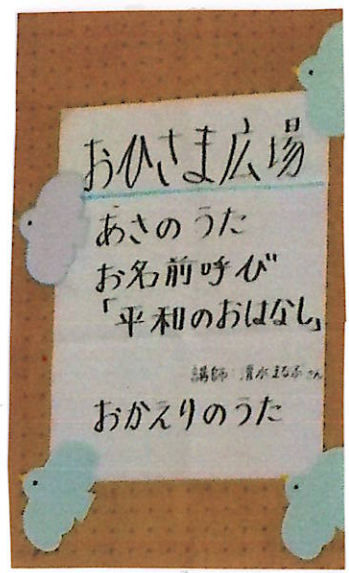 おひさま広場
あさのうた
お名前呼び
「平和のおはなし」
講師 清水まるみさん
おかえりのうた